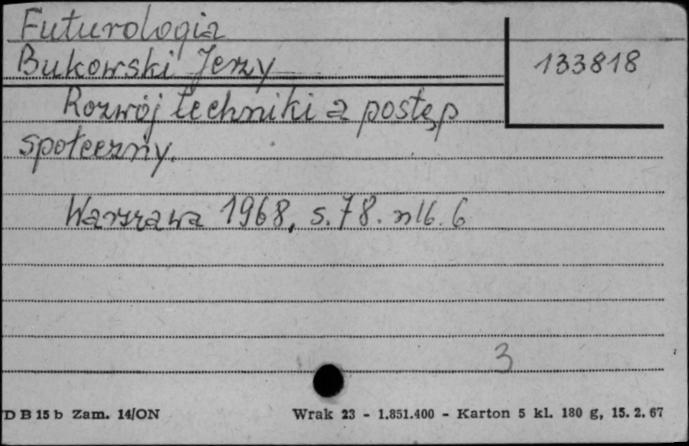 Futurologia
Bukowski Jerzy
133818
Rozwój techniki a postęp
społeczny.
Warszawa 1968, s. 78. nlb. 6
3
D B 15 b Zam. 14/ON
Wrak 23 - 1.851.400 - Karton 5 kl. 180 g, 15. 2. 67